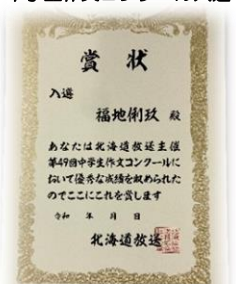 賞状
入選
福地俐玖 殿
あなたは北海道放送主催
第49回中学生作文コンクールに
おいて優秀な成績を収められた
のでここにこれを賞します
令和 年 月 日
北海道放送